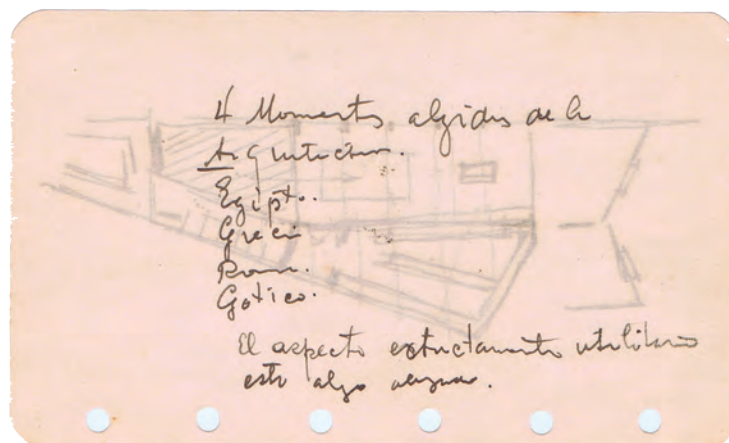 4 Momentos algidos de la
Arquitectura.
Egipto.
Grecia
Roma.
Gotico.
El aspecto estrictamente utilitario
este algo